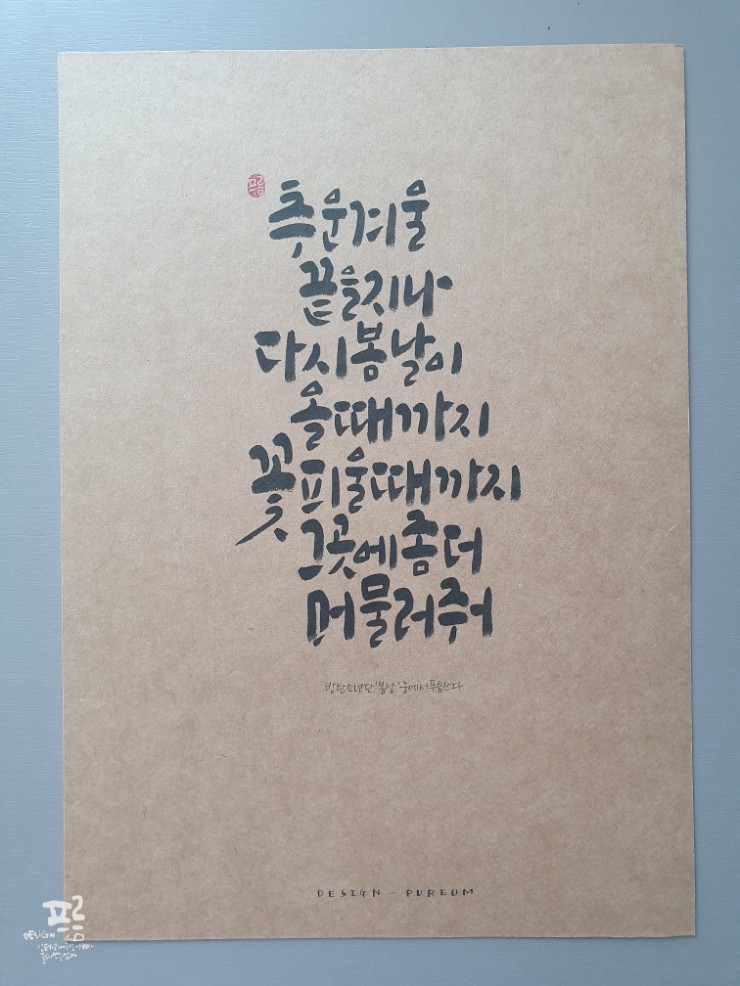 추운겨울
끝을지나
다시봄날이
올때까지
꽃피울때까지
그곳에좀더
머물러줘
방탄소년단'봄날'중에서푸름쓰다
DESIGN - PUREUM
푸름
DESIGN